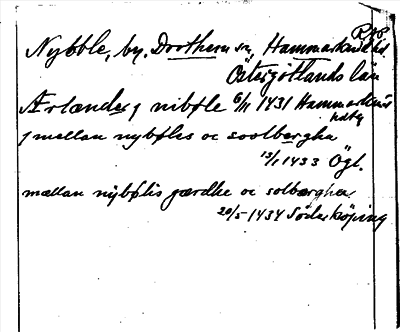 R 48
Nybble, by. Drothems sn, Hammarkinds hd.
Östergötlands län
Ærlændes j nibøle 6/11 1431 Hammarkinds
hdtg
j mællan nybøles oc soolbergha
13/1 1433 Ögl.
mællan nybølis gærdhe oc solbærghæ
20/5 1434 Söderköping